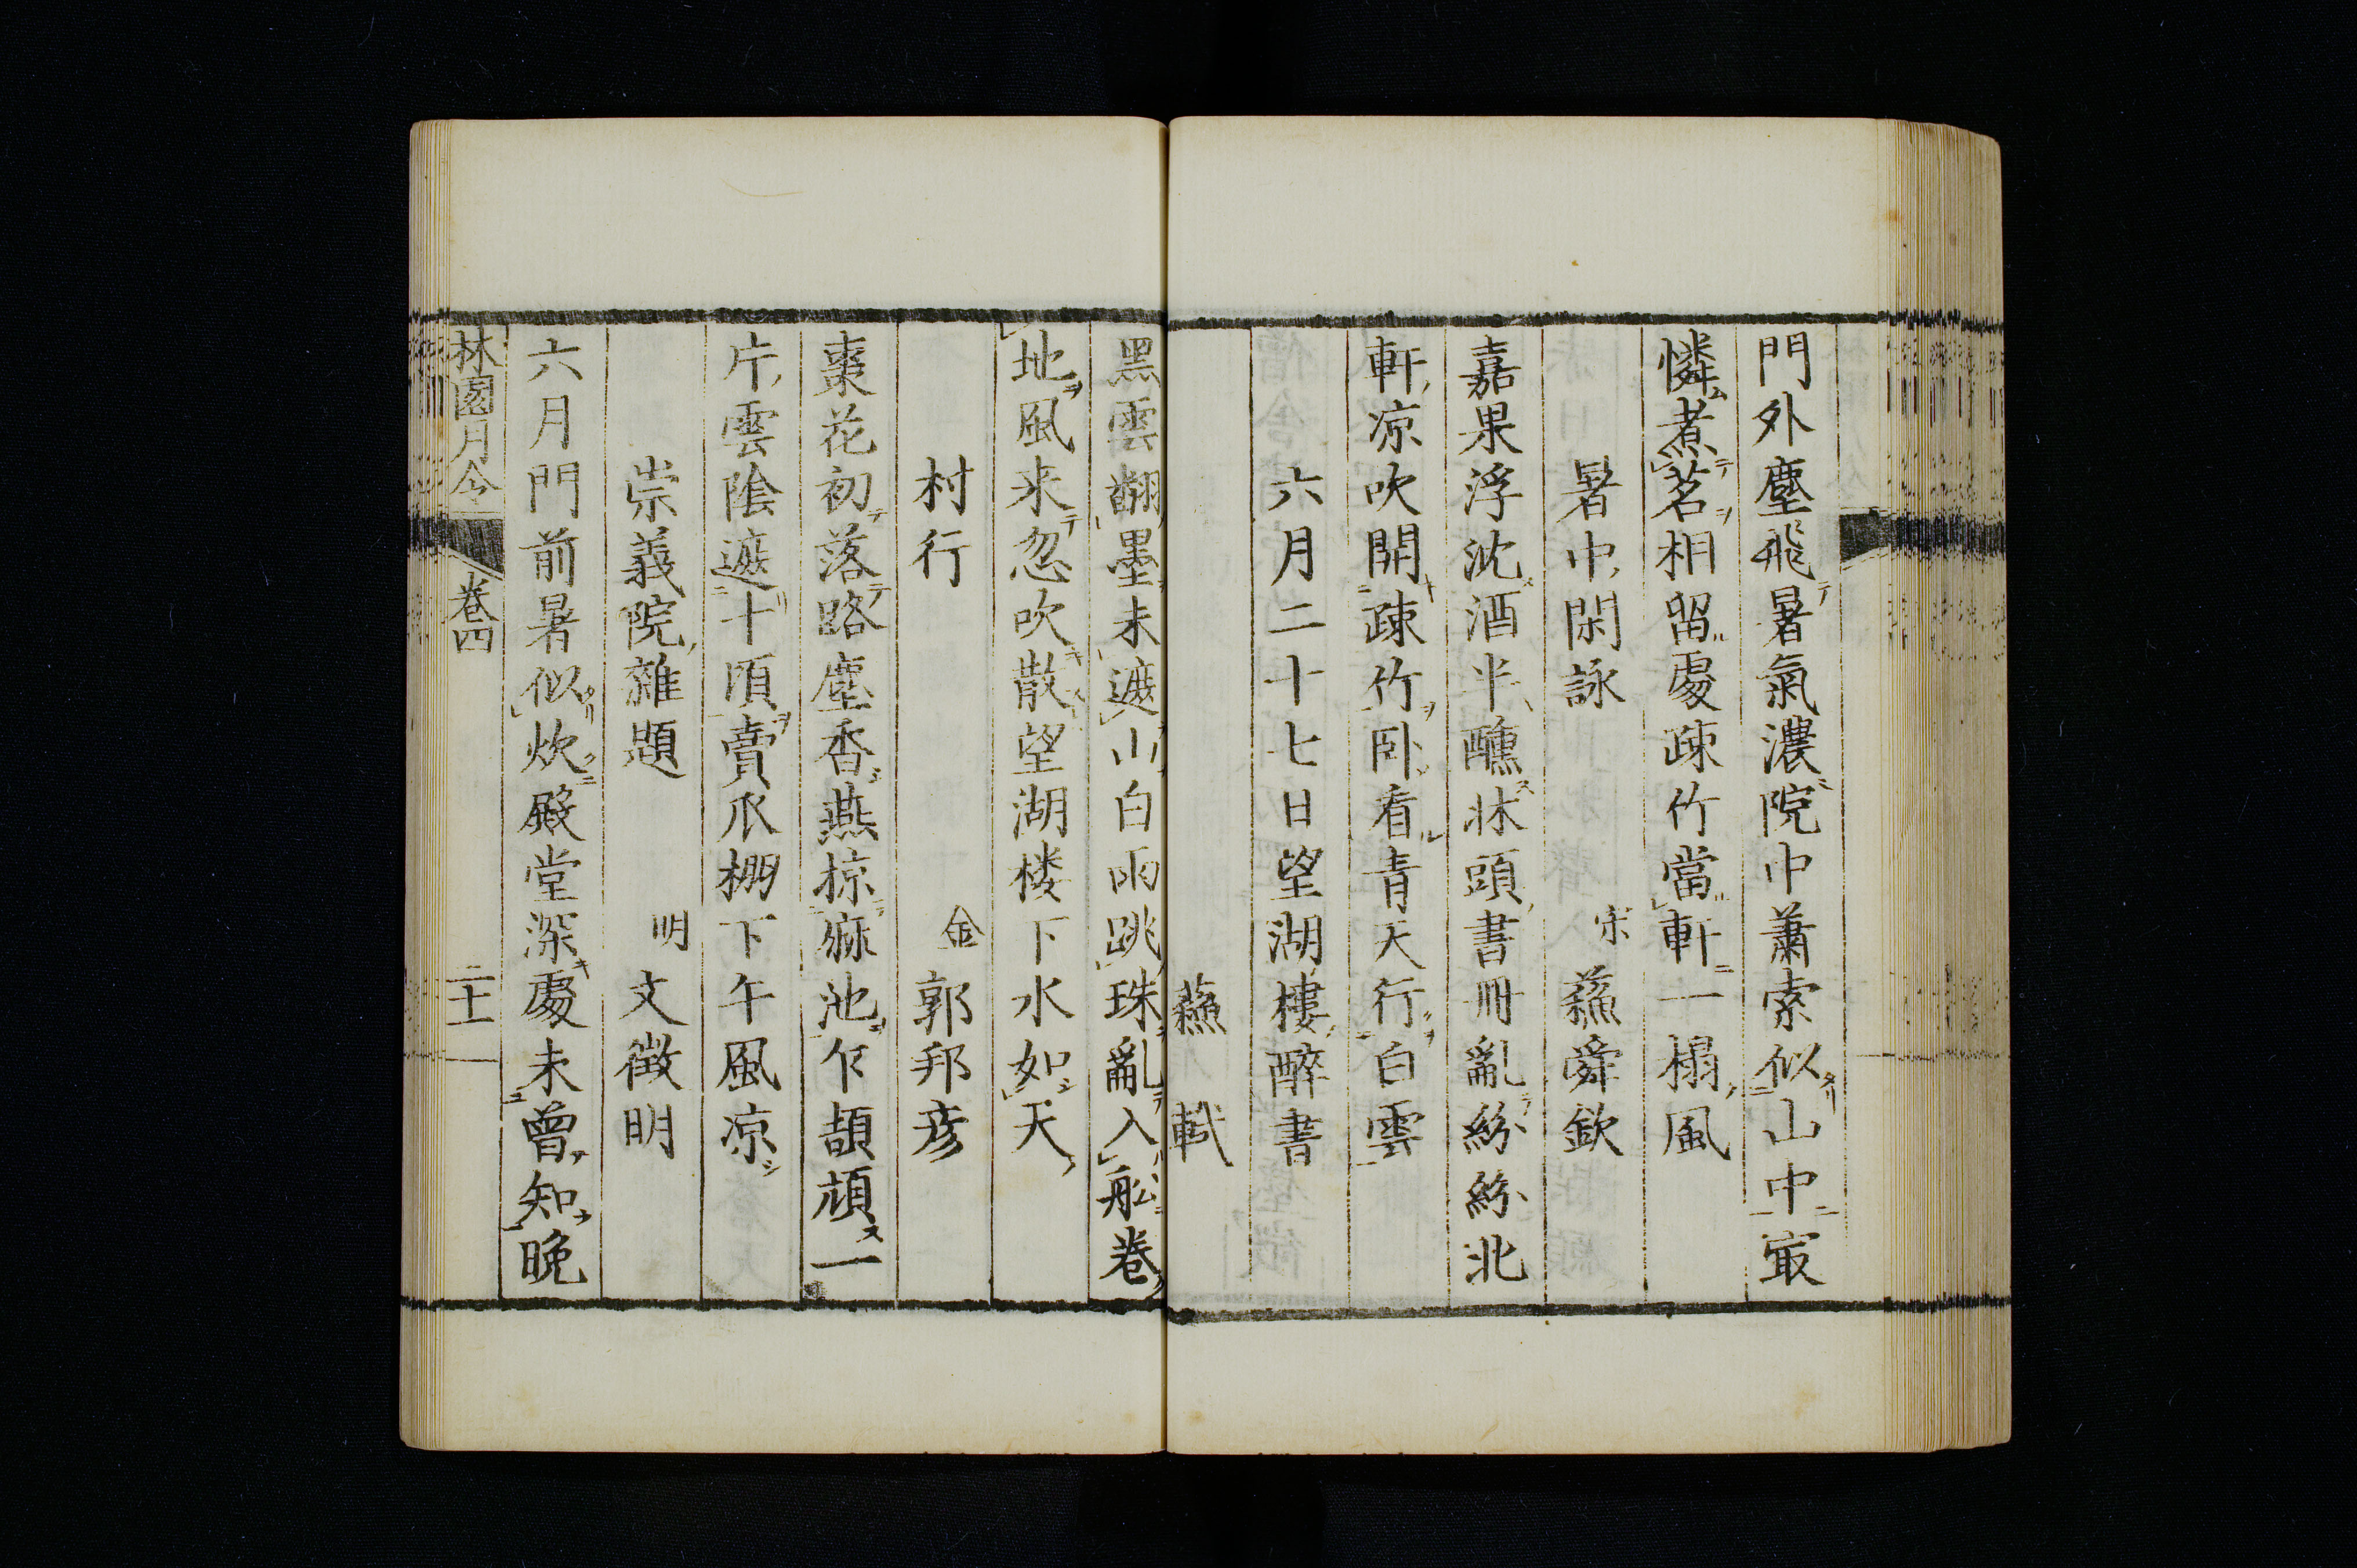 門外塵飛暑氣濃院中蕭索似山中㝡
憐煮茗相留處疎竹當軒一榻風
暑中閑詠　宋　蘓舜欽
嘉果浮沈酒半醺牀頭書冊亂紛紛北
軒凉吹開疎竹卧看青天行白雲
六月二十七日望湖樓醉書
蘓軾
黑雲翻墨未遮山白雨跳珠亂入舩卷
地風来忽吹散望湖楼下水如天
村行　金　郭邦彦
棗花初落路塵香燕掠麻池乍頡頏一
片雲陰遮十頃賣瓜棚下午風凉
崇義院雜題　明　文徴明
六月門前暑似炊殿堂深處未曾知晚
林園月令　卷四　二十一